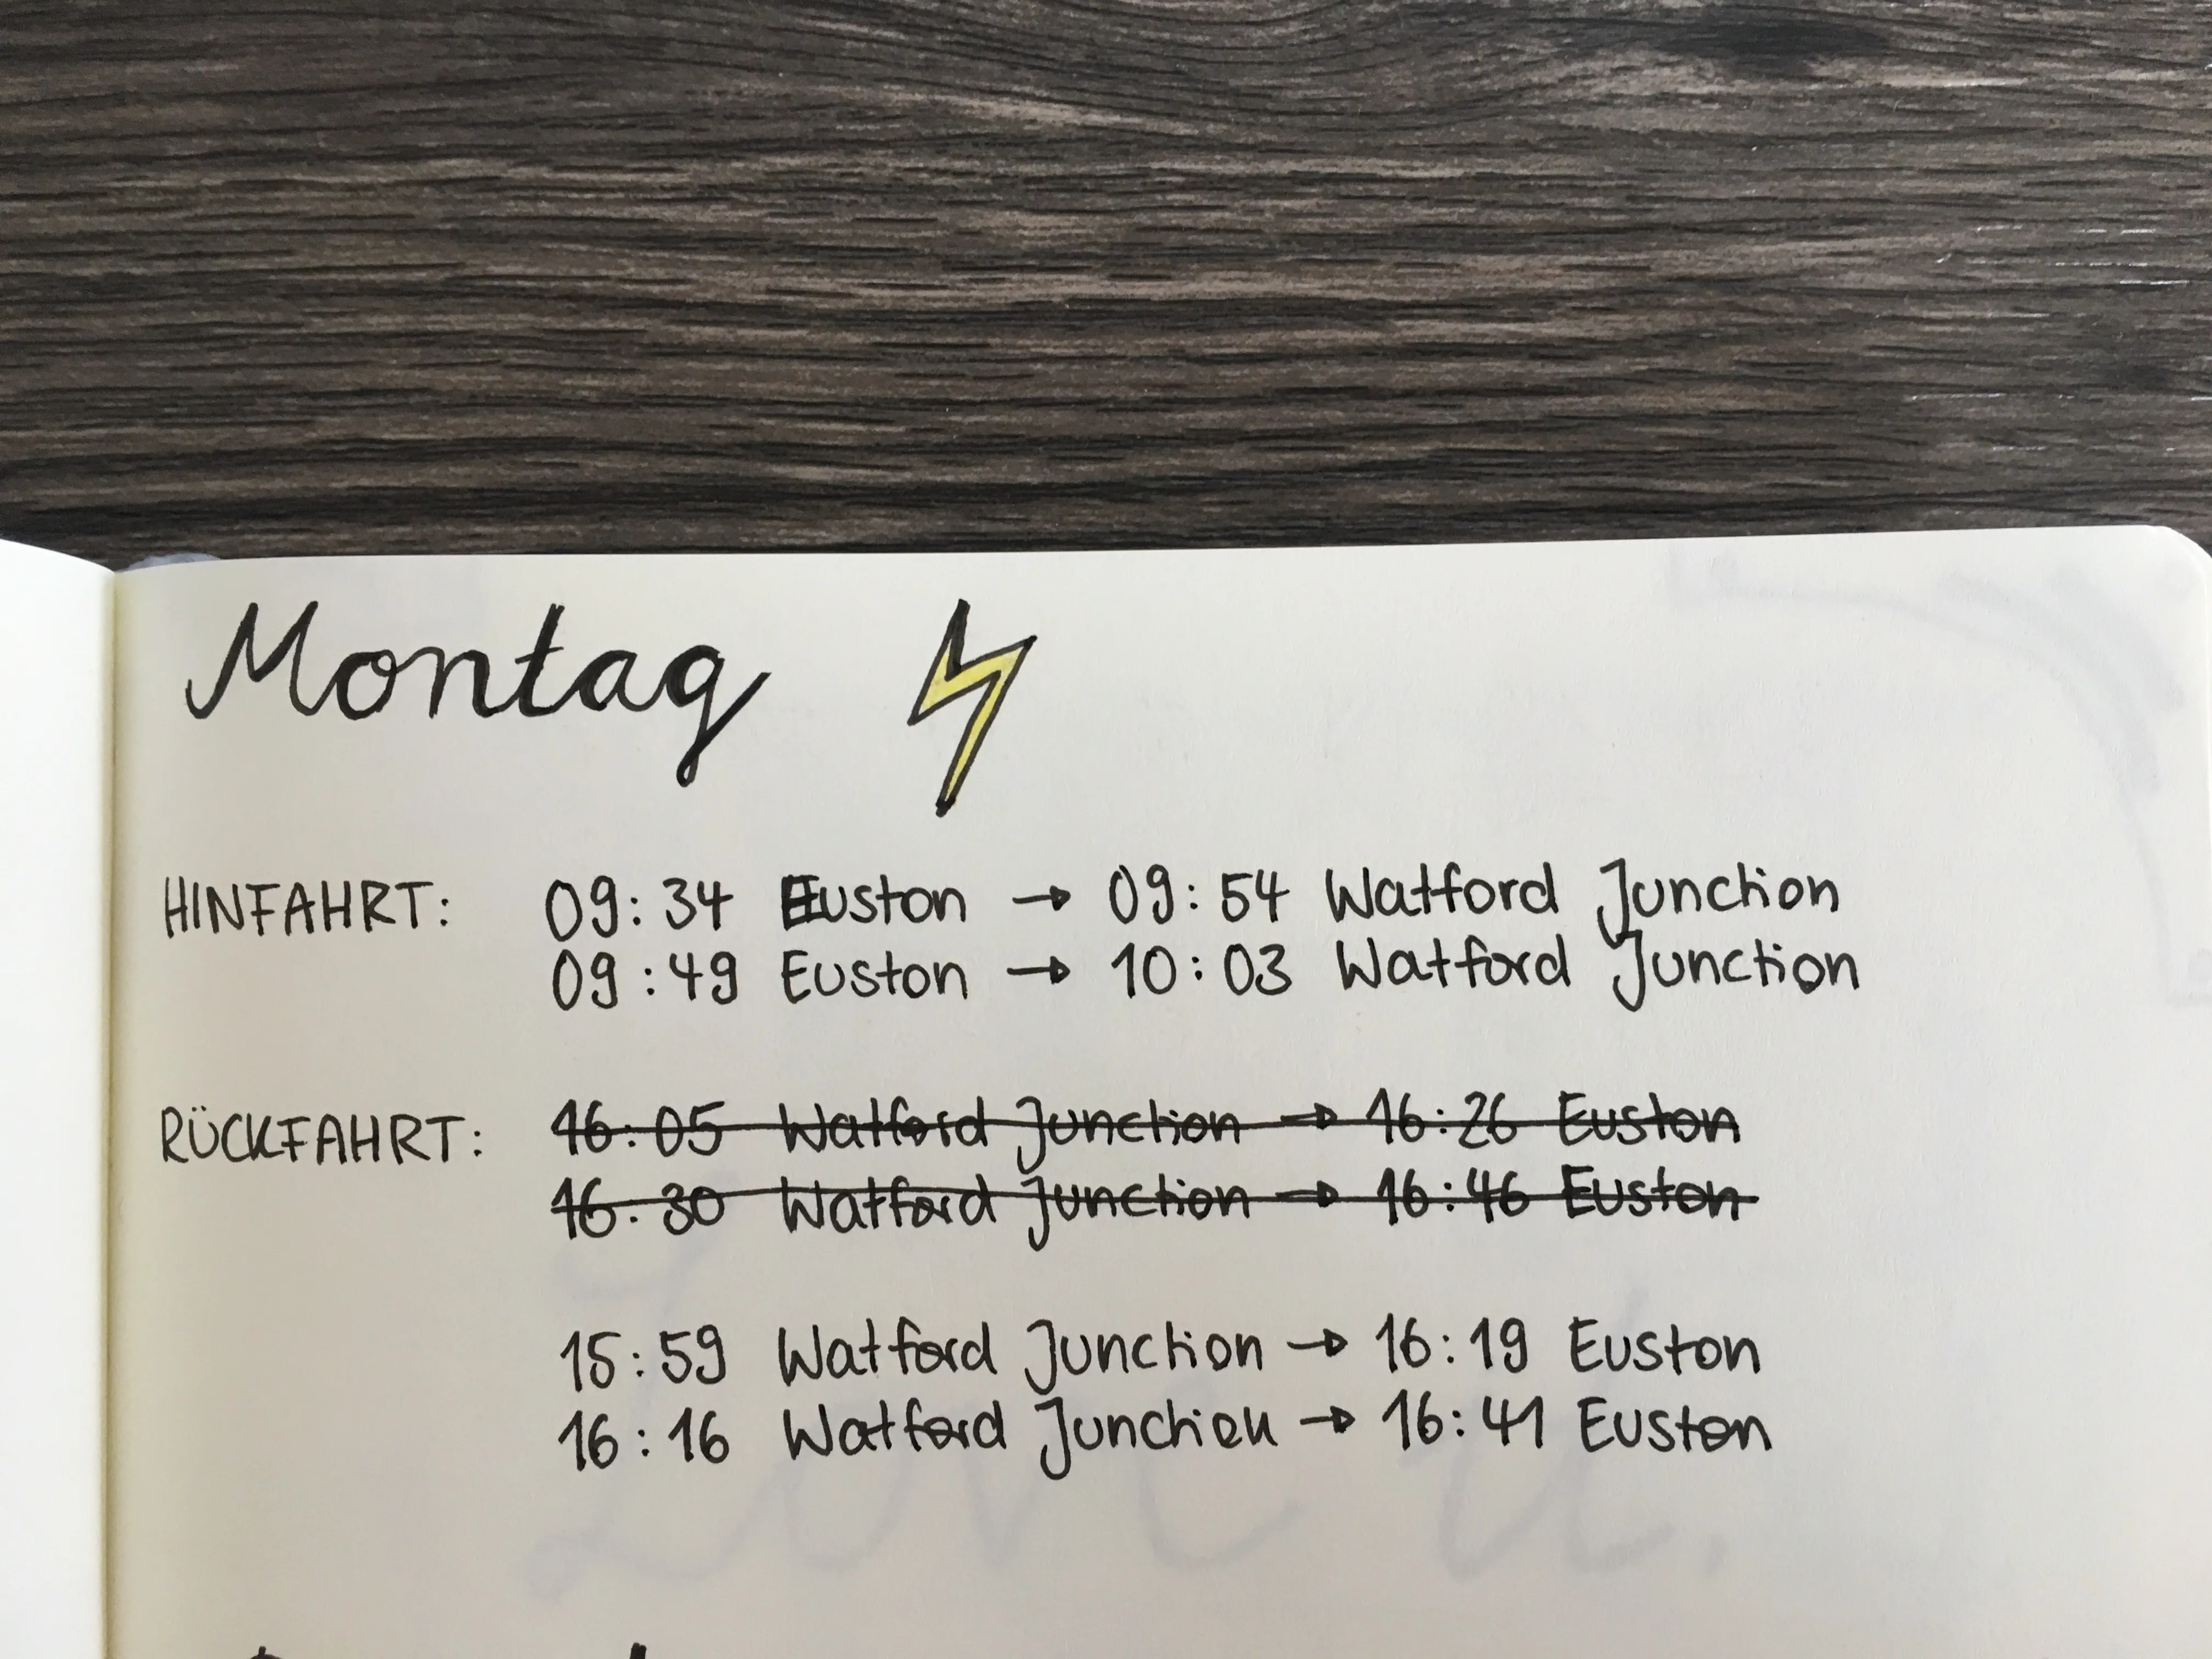 Montag
HINFAHRT: 09:34 Euston → 09:54 Watford Junction
09:49 Euston → 10:03 Watford Junction
RÜCKFAHRT: 16:05 Watford Junction → 16:26 Euston
16:30 Watford Junction → 16:46 Euston
15:59 Watford Junction → 16:19 Euston
16:16 Watford Junction → 16:41 Euston